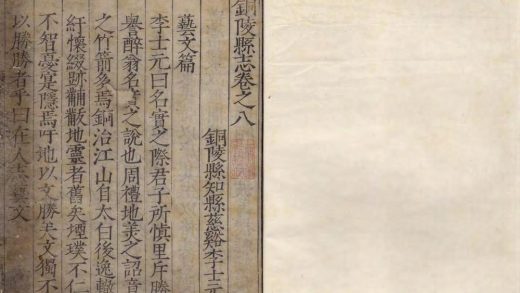 銅陵縣志卷之八
銅陵縣知縣茲谿李士元
藝文篇
李士元曰名實之際君子所慎里斥勝
譽醉翁名之說也周禮地美之詔音
之竹箭多焉銅治江山自太白後逸轍
紆懷綴跡黼黻地靈者舊矣堙璞不仁
不智惡寔隱焉吁地以文勝矣文獨不
以勝勝者乎曰在人志藝文